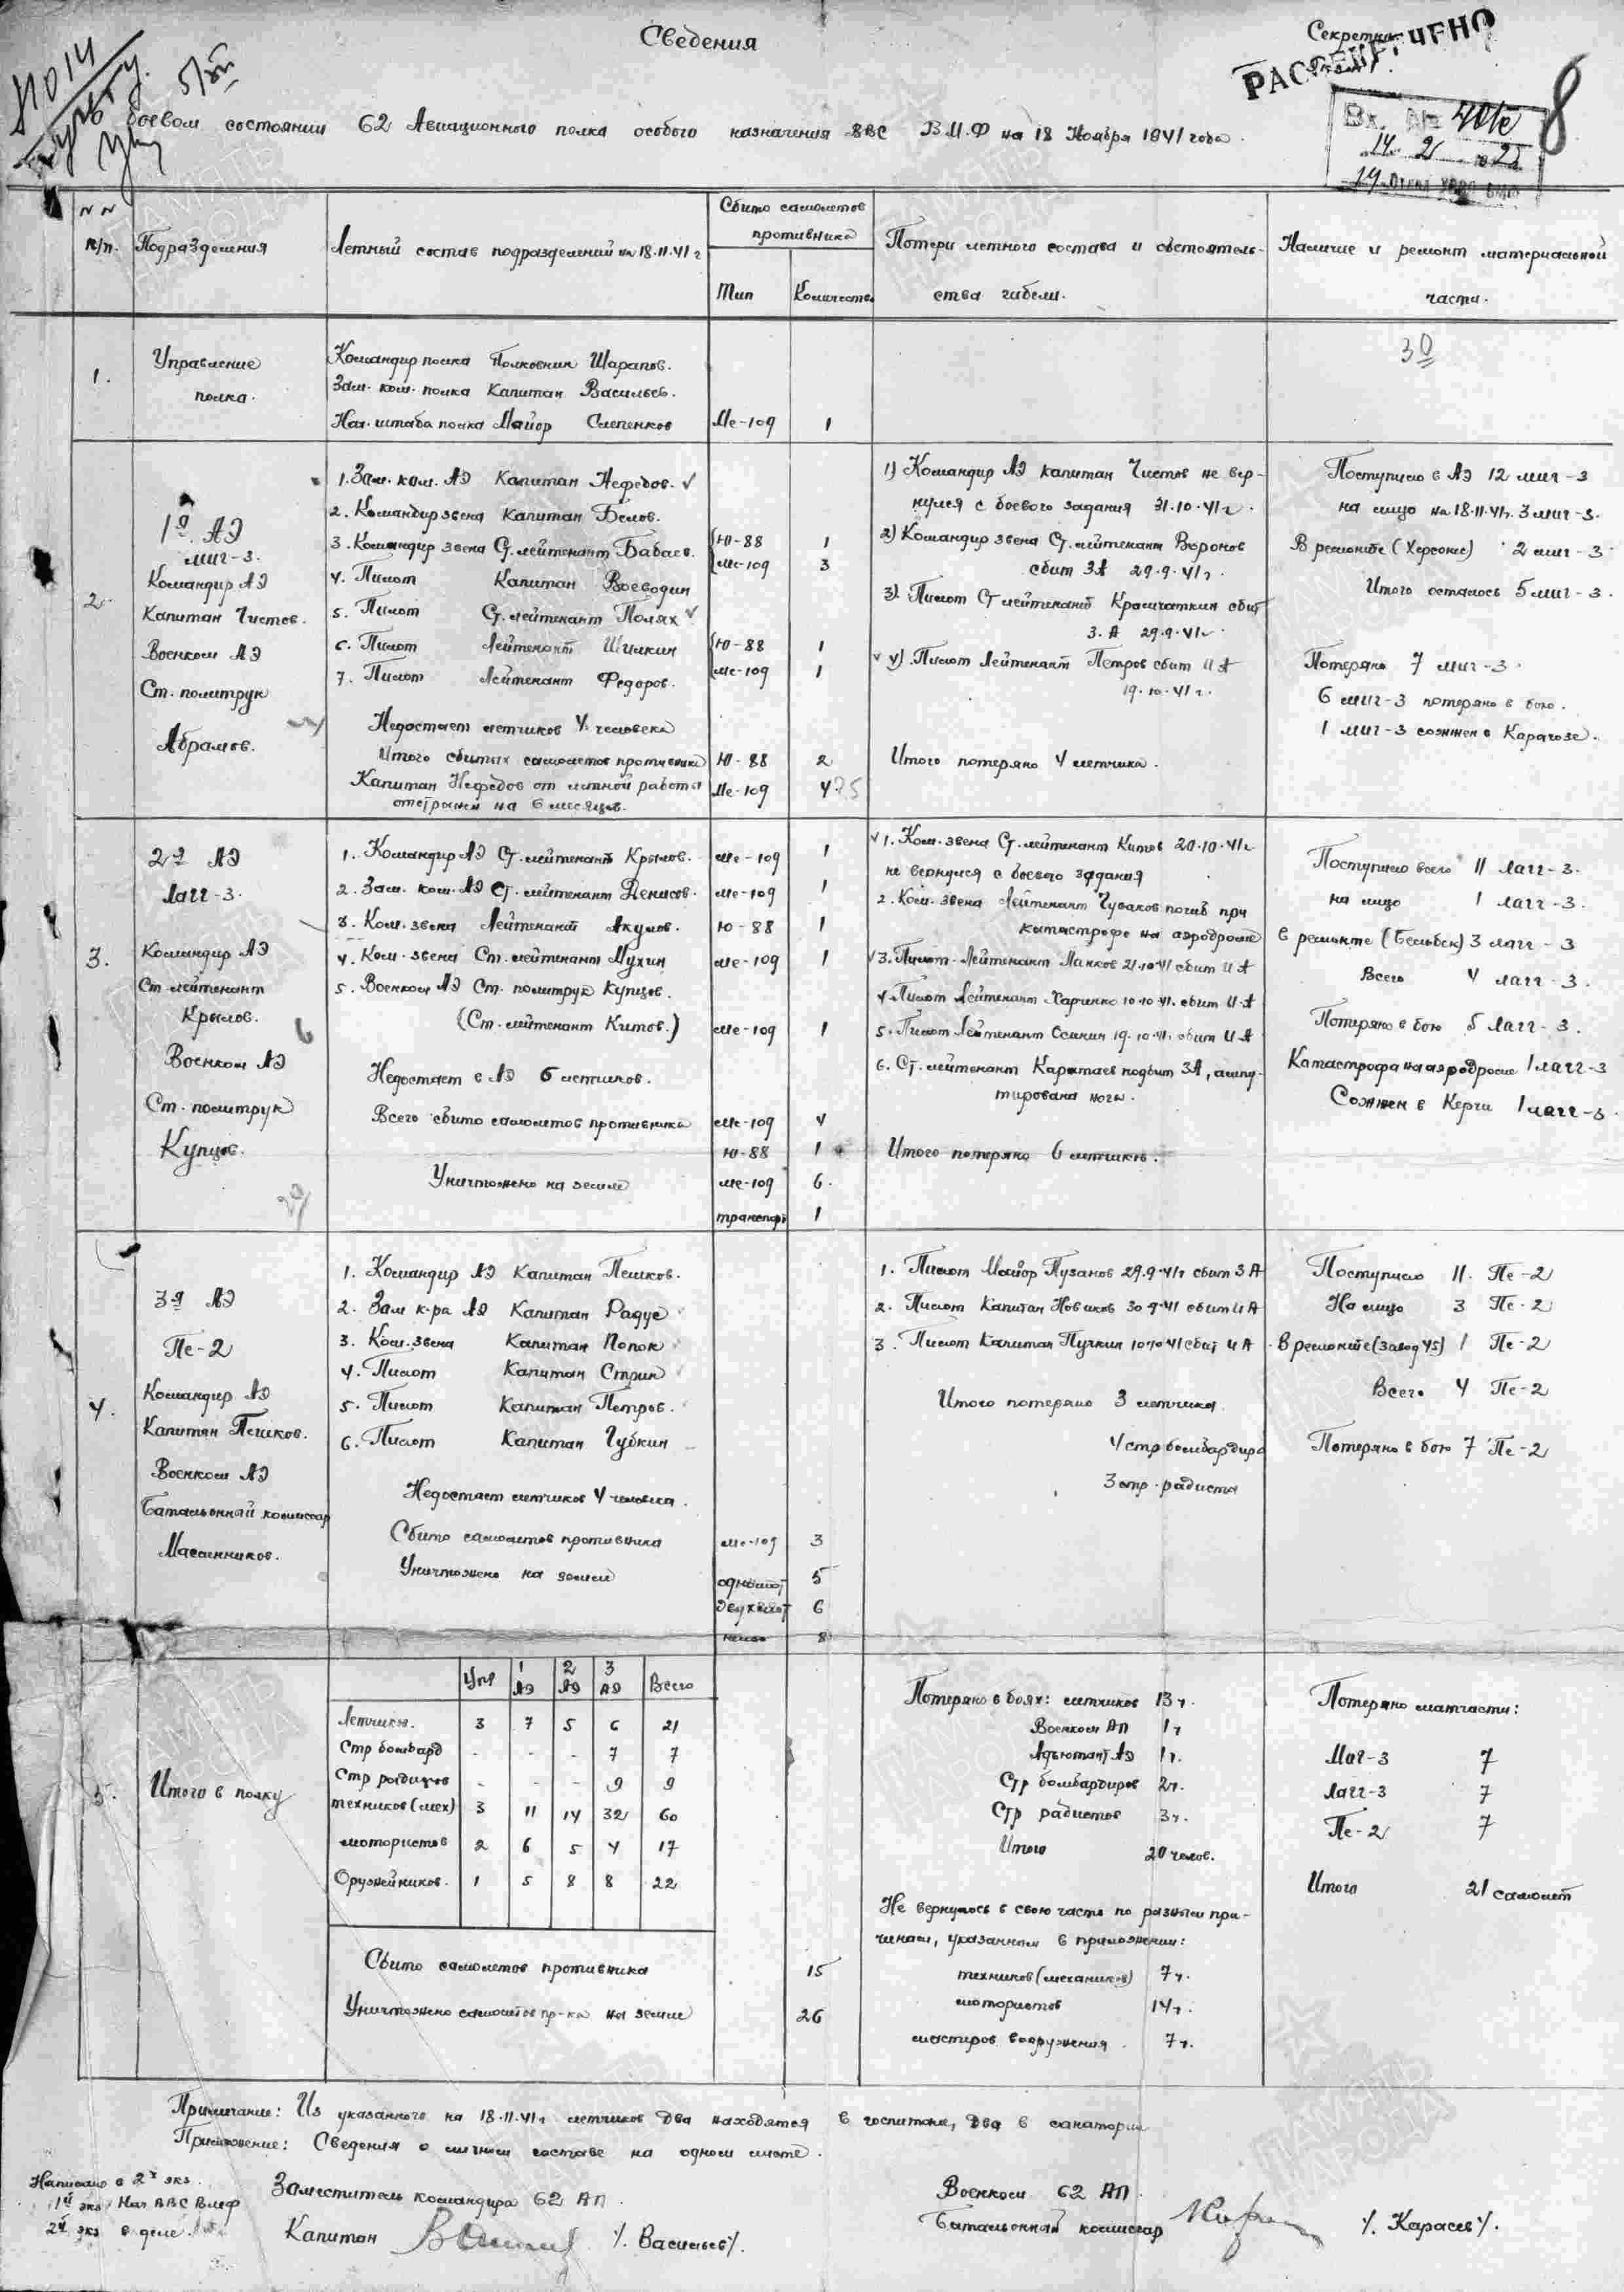 Сведения
Секретно
РАССЕКРЕЧЕНО
8
боевом состоянии 62 Авиационного полка особого назначения ВВС В.М.Ф на 18 Ноября 1941 года.
Вх. №
14 2
N N п/п.
Подразделения
Летный состав подразделений на 18.11.41 г
Сбито самолетов противника
Тип
Количество
Потери летного состава и обстоятель-
ства гибели.
Наличие и ремонт материальной
части.
30
1.
Управление
полка.
Командир полка Полковник Шарапов.
Зам. ком. полка Капитан Васильев.
Нач. штаба полка Майор Слепенков
Ме-109 1
2.
1я АЭ
миг-3.
Командир АЭ
Капитан Чистов.
Военком АЭ
Ст. политрук
Абрамов.
1. Зам. ком. АЭ Капитан Нефедов.
2. Командир звена Капитан Белов.
3. Командир звена Ст. лейтенант Бабаев.
4. Пилот Капитан Воеводин
5. Пилот Ст. лейтенант Полях
6. Пилот Лейтенант Шилкин
7. Пилот Лейтенант Федоров.
Недостает летчиков 4 человека
Итого сбитых самолетов противника
Капитан Нефедов от летной работы
отстранен на 6 месяцев.
Ю-88 1
Ме-109 3
Ю-88 1
Ме-109 1
Ю-88 2
Ме-109 4
1) Командир АЭ капитан Чистов не вер-
нулся с боевого задания 31.10.41 г.
2) Командир звена Ст. лейтенант Воронов
сбит ЗА 29.9.41 г.
3) Пилот Ст лейтенант Крамчаткин сбит
З.А 29.9.41 г.
4) Пилот Лейтенант Петров сбит ИА
19.10.41 г.
Итого потеряно 4 летчика.
Поступило в АЭ 12 миг-3
на лицо на 18.11.41 г. 3 миг-3.
В ремонте (Херсонес) 2 миг-3
Итого осталось 5 миг-3.
Потеряно 7 миг-3.
6 миг-3 потеряно в бою.
1 миг-3 сожжен в Карагозе.
3.
2я АЭ
Лагг-3.
Командир АЭ
Ст лейтенант
Крылов.
Военком АЭ
Ст. политрук
Купцов.
1. Командир АЭ Ст. лейтенант Крылов.
2. Зам. ком. АЭ Ст. лейтенант Денисов.
3. Ком. звена Лейтенант Акулов.
4. Ком. звена Ст. лейтенант Мухин
5. Военком АЭ Ст. политрук Купцов.
(Ст. лейтенант Китов.)
Недостает в АЭ 6 летчиков.
Всего сбито самолетов противника
Уничтожено на земле
Ме-109 1
Ме-109 1
Ю-88 1
Ме-109 1
Ме-109 1
Ме-109 4
Ю-88 1
Ме-109 6
транспорт 1
1. Ком. звена Ст. лейтенант Китов 20.10.41 г
не вернулся с боевого задания
2. Ком. звена Лейтенант Чуваков погиб при
катастрофе на аэродроме
3. Пилот Лейтенант Панков 21.10.41 сбит ИА
4. Пилот Лейтенант Харченко 10.10.41. сбит ИА
5. Пилот Лейтенант Осинин 19.10.41. сбит ИА
6. Ст. лейтенант Каратаев подбит ЗА, ампу-
тирована нога.
Итого потеряно 6 летчиков.
Поступило всего 11 Лагг-3.
на лицо 1 Лагг-3.
в ремонте (Бельбек) 3 лагг-3
Всего 4 лагг-3.
Потеряно в бою 5 Лагг-3.
Катастрофа на аэродроме 1 лагг-3
Сожжен в Керчи 1 лагг-3.
4.
3я АЭ
Пе-2
Командир АЭ
Капитан Пешков.
Военком АЭ
Батальонный комиссар
Масленников.
1. Командир АЭ Капитан Пешков.
2. Зам к-ра АЭ Капитан Радус
3. Ком. звена Капитан Попок
4. Пилот Капитан Стрик
5. Пилот Капитан Петров.
6. Пилот Капитан Губкин
Недостает летчиков 4 человека.
Сбито самолетов противника
Уничтожено на земле
Ме-109 3
одномот 5
двухмот 6
8
1. Пилот Майор Пузанов 29.9.41 г сбит ЗА
2. Пилот Капитан Новиков 30.9.41 сбит ИА
3. Пилот Капитан Пучкин 10.10.41 сбит ИА
Итого потеряно 3 летчика
4 стр бомбардира
3 стр. радиста
Поступило 11. Пе-2
На лицо 3 Пе-2
В ремонте (завод 45) 1 Пе-2
Всего 4 Пе-2
Потеряно в бою 7 Пе-2
5.
Итого в полку
Упр 1 АЭ 2 АЭ 3 АЭ Всего
Летчики. 3 7 5 6 21
Стр бомбард - - - 7 7
Стр радистов - - - 9 9
техников (мех) 3 11 14 32 60
мотористов 2 6 5 4 17
Оружейников. 1 5 8 8 22
Сбито самолетов противника 15
Уничтожено самолетов пр-ка на земле 26
Потеряно в боях: летчиков 13 ч.
Военком АП 1 ч
Адъютант АЭ 1 ч.
Стр бомбардиров 2 ч.
Стр радистов 3 ч.
Итого 20 челов.
Не вернулось в свою часть по разным при-
чинам, указанным в приложении:
техников (механиков) 7 ч.
мотористов 14 ч.
мастеров вооружения 7 ч.
Потеряно матчасти:
Миг-3 7
Лагг-3 7
Пе-2 7
Итого 21 самолет
Примечание: Из указанного на 18.11.41 г летчиков два находятся в госпитале, два в санатории
Приложение: Сведения о личном составе на одном листе.
Написано в 2х экз.
1й экз Нач ВВС Вмф
2й экз в деле
Заместитель командира 62 АП.
Капитан /. Васильев/.
Военком 62 АП.
Батальонный комиссар /. Карасев/.